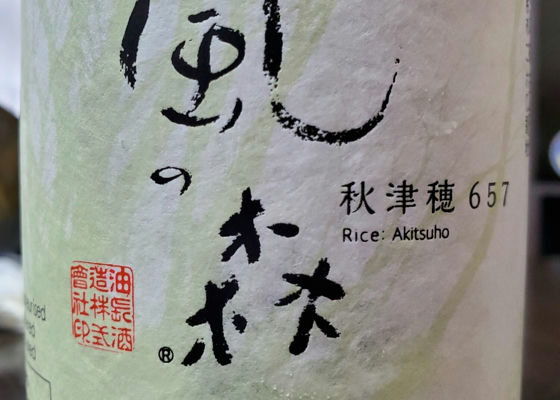 風の森
秋津穂 657
Rice: Akitsuho
油長酒
造株式
會社印
®